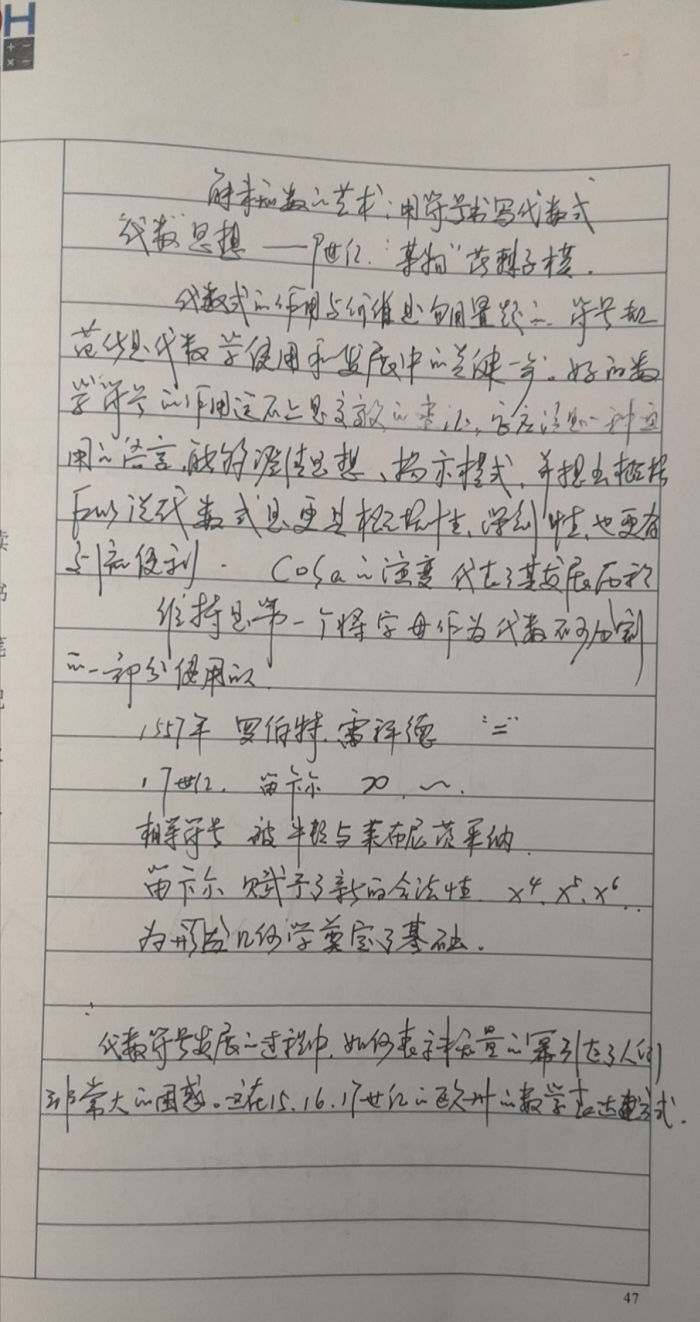 解未知数的艺术:用符号书写代数式
代数思想——9世纪.“某物”花剌子模.
代数式的作用与价值是毋庸置疑的. 符号规
范化是代数学使用和发展中的关键一步。好的数
学符号的作用远不止是文献的速记,它应该是一种通
用的语言,能够澄清思想、揭示模式,并提出推据
所以说代数式是更具概括性、深刻性,也更有
Cosa的演变代表了其发展历程
维持是第一个将字母作为代数不可分割
的一部分使用的
1557年 罗伯特.雷科德 “=”
17世纪. 笛卡尔 ∞
相等符号 被牛顿与莱布尼茨采纳
笛卡尔 赋予了新的合法性 x⁴、x⁵、x⁶..
为解几何学奠定了基础.
代数符号发展的过程中,如何表示未知量的幂引起了人们
非常大的困惑。这在15.16.17世纪的欧州的数学表达式.
47